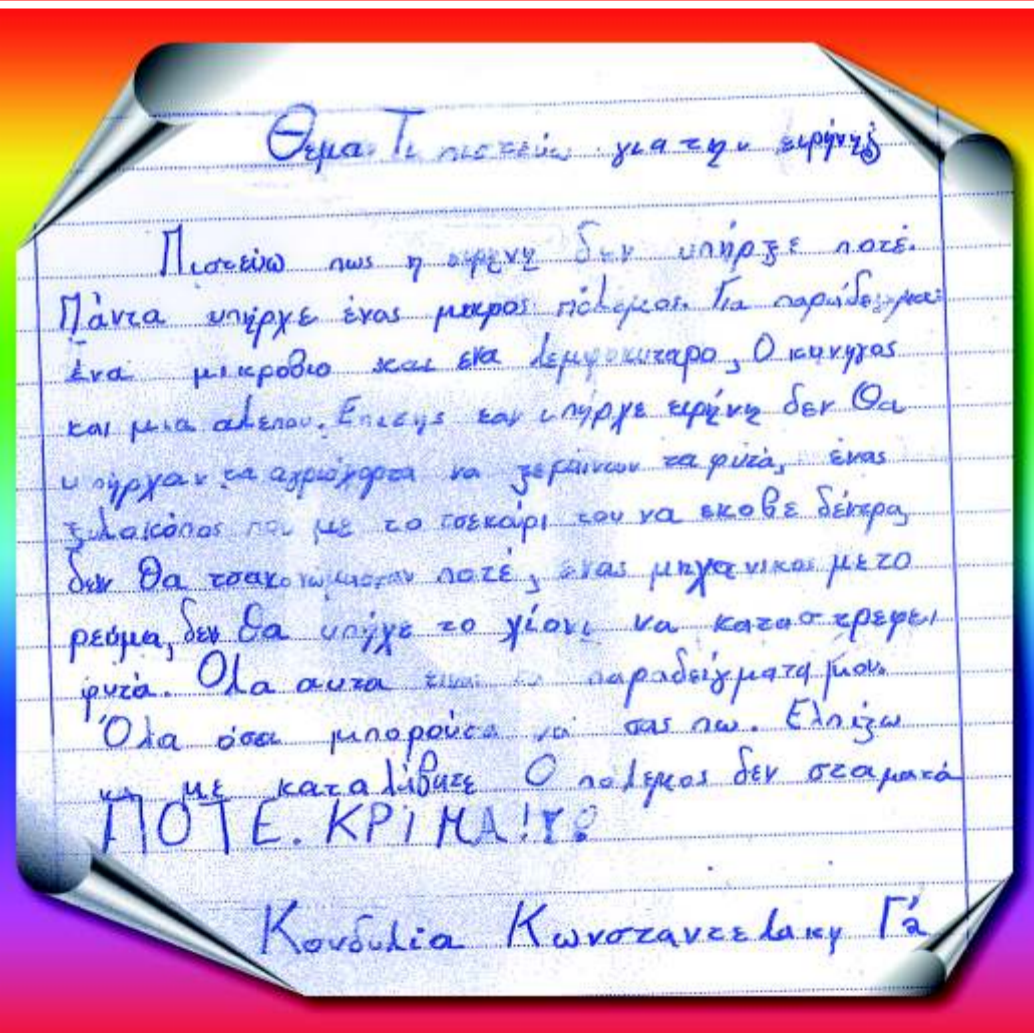 Θεμα: Τι πιστεύω για την ειρήνη
Πιστεύω πως η ειρηνη δεν υπήρξε ποτέ.
Πάντα υπήρχε ένας μικρος πόλεμος. Για παράδειγμα:
ένα μικροβιο και ενα λεμφοκυταρο, Ο κυνηγος
και μια αλεπου. Επισης εαν υπήρχε ειρήνη δεν θα
υπήρχαν τα αγριόχορτα να ξεραίνουν τα φυτά, ένας
ξυλοκόπος που με το τσεκάρι του να εκοβε δέντρα,
δεν θα τσακωνώμασταν ποτέ, ένας μηχανικος με το
ρεύμα, δεν θα υπήχε το χίονι να καταστρεφει
φυτά. Ολα αυτα ειναι τα παραδείγματα μου.
Όλα όσα μπορούσα να σας πω. Ελπιζω
να με καταλάβατε Ο πολεμος δεν σταματά
ΠΟΤΕ. ΚΡΙΜΑ!!!
Κονδυλία Κωνσταντελακη Γ'α